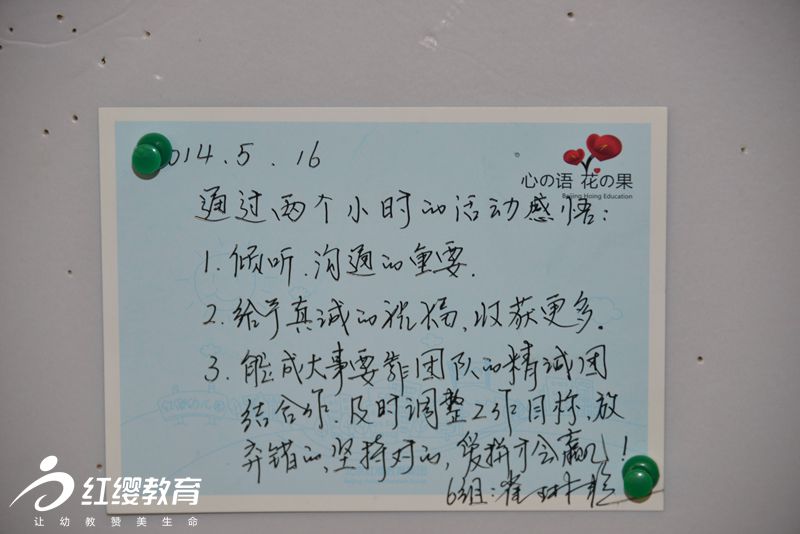 2014.5.16
心の语 花の果
Beijing Hoing Education
通过两个小时的活动感悟:
1.倾听、沟通的重要.
2.给予真诚的祝福、收获更多.
3.能成大事要靠团队的精诚团
结合作.及时调整工作目标、放
弃错的、坚持对的,爱拼才会赢!
6组:崔
红缨教育
让幼教赞美生命